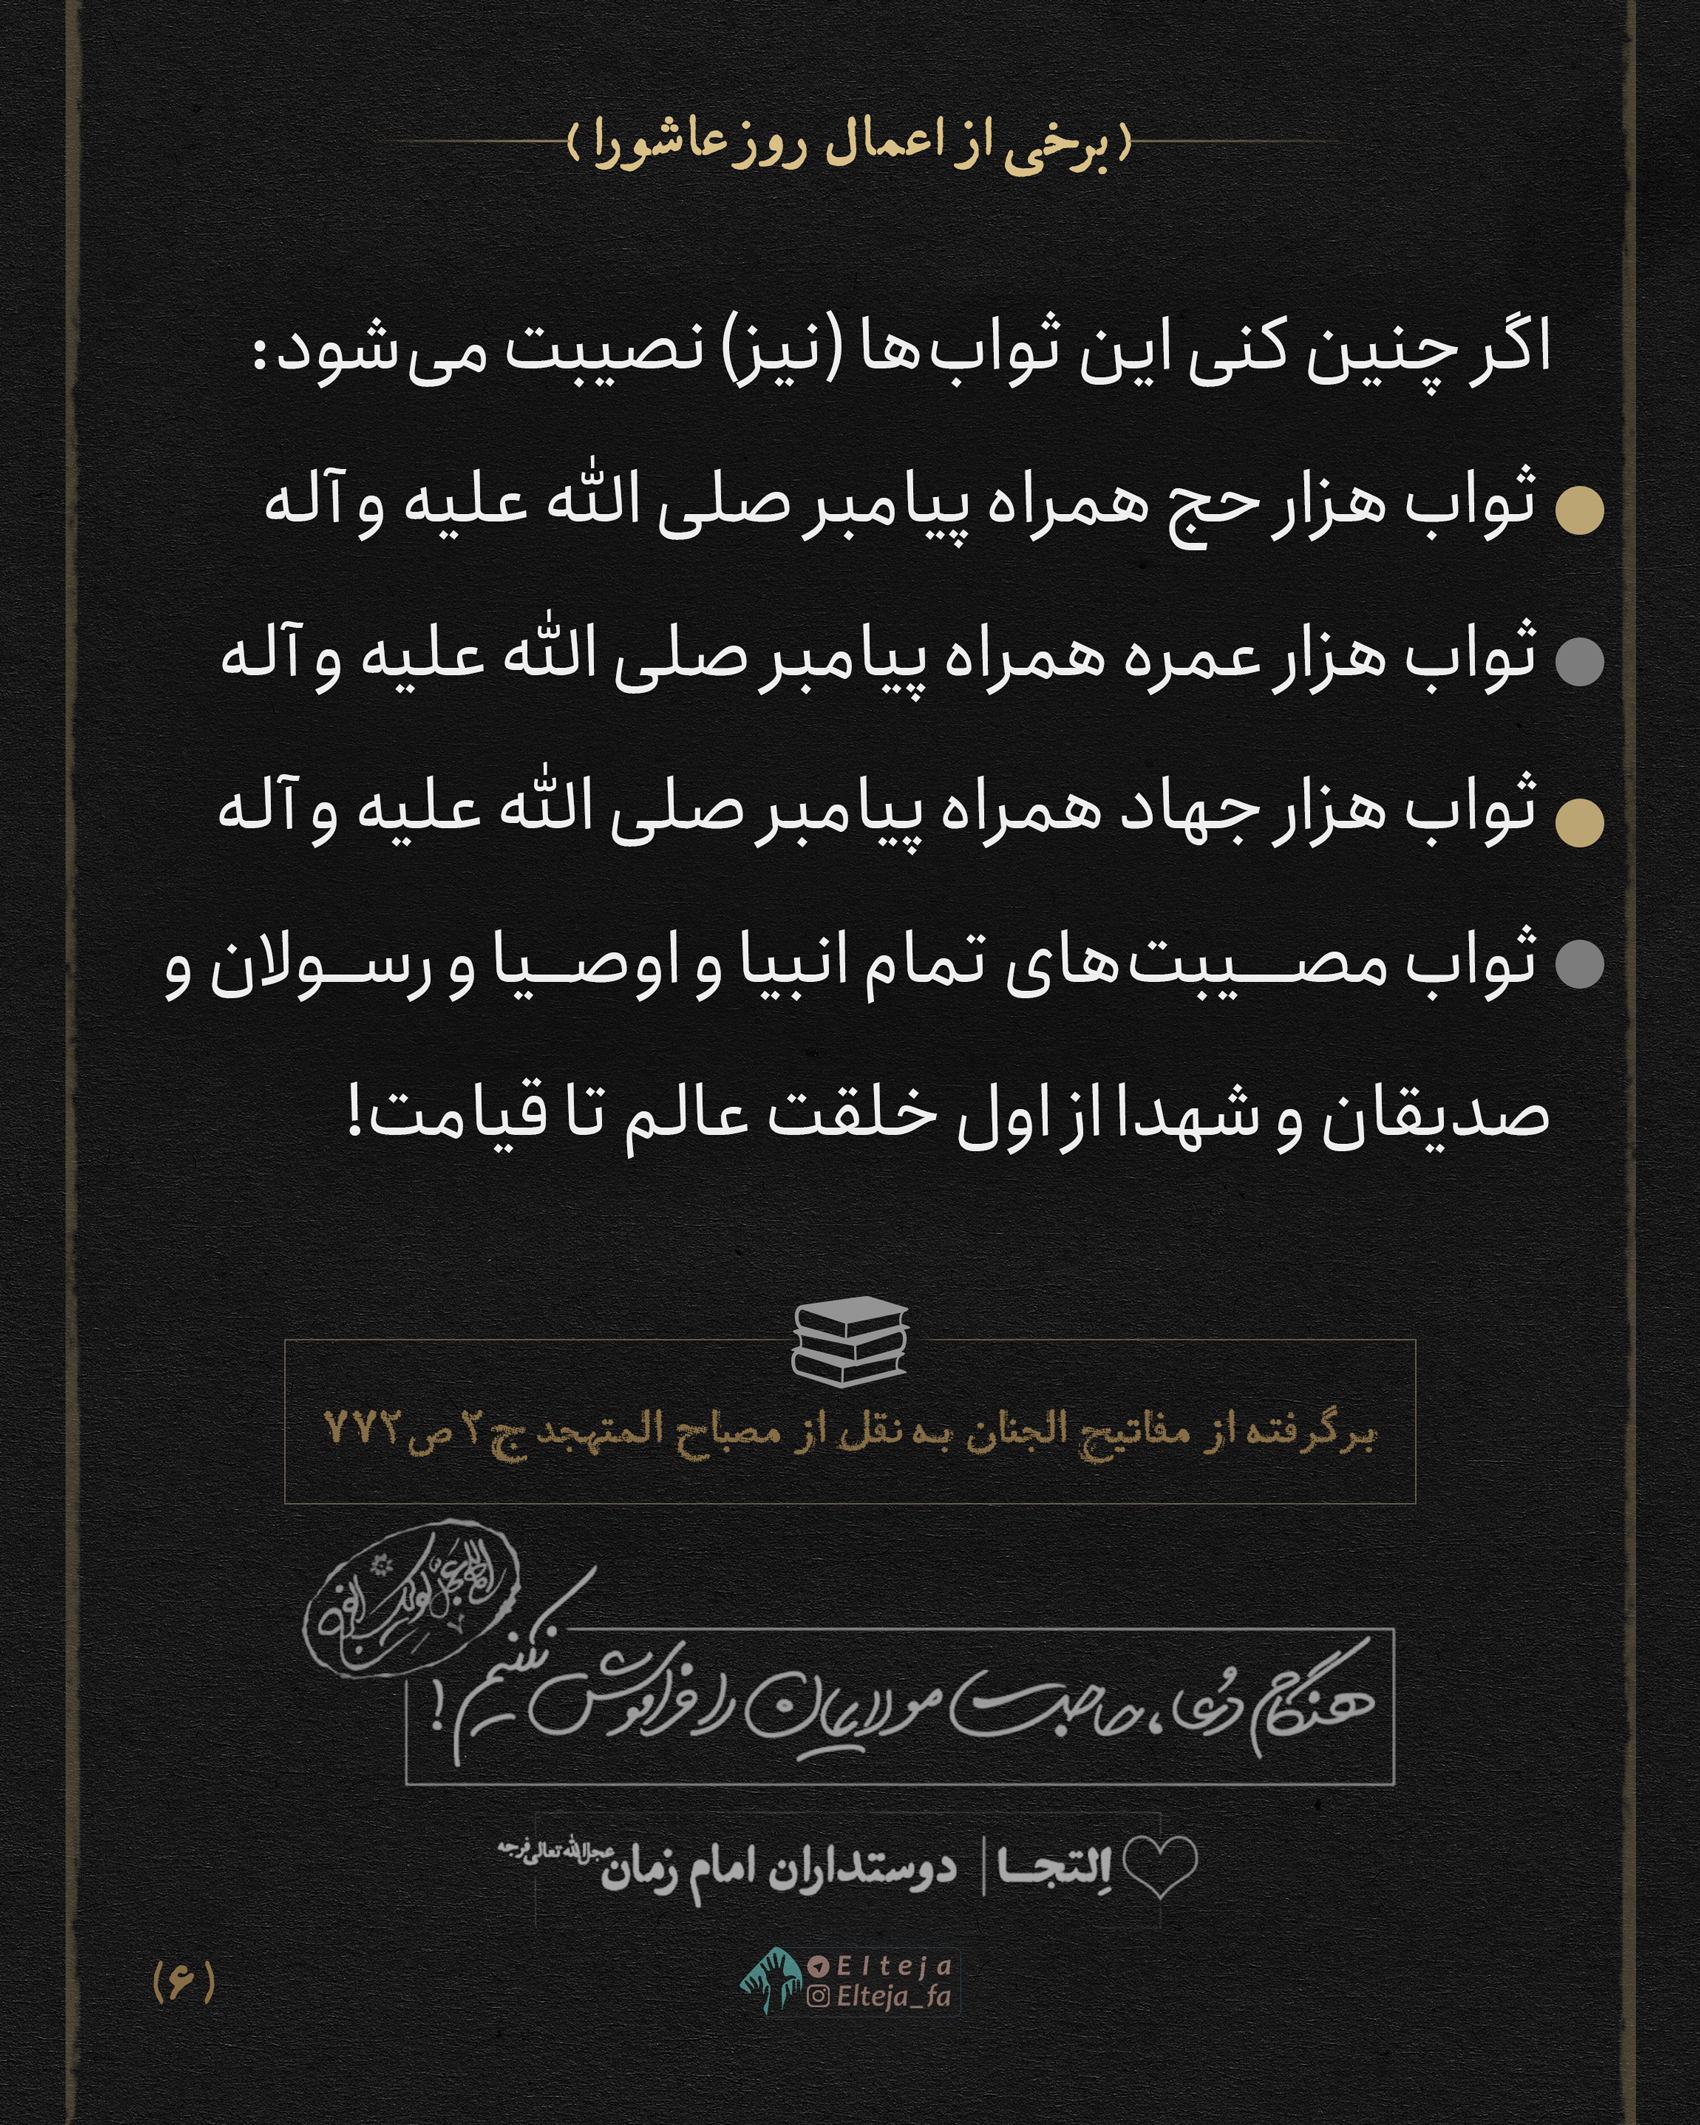 ( برخی از اعمال روز عاشورا )
اگر چنین کنی این ثواب‌ها (نیز) نصیبت می‌شود:
ثواب هزار حج همراه پیامبر صلی الله علیه و آله
ثواب هزار عمره همراه پیامبر صلی الله علیه و آله
ثواب هزار جهاد همراه پیامبر صلی الله علیه و آله
ثواب مصـــیبت‌های تمام انبیا و اوصــیا و رســولان و
صدیقان و شهدا از اول خلقت عالم تا قیامت!
برگرفته از مفاتیح الجنان به نقل از مصباح المتهجد ج۲ ص۷۷۲
اللهم عجل لولیک الفرج
هنگام دعا، حاجت مولایمان را فراموش نکنیم!
اِلتجــا | دوستداران امام زمان عجل‌الله‌تعالی‌فرجه
Elteja
Elteja_fa
(۶)